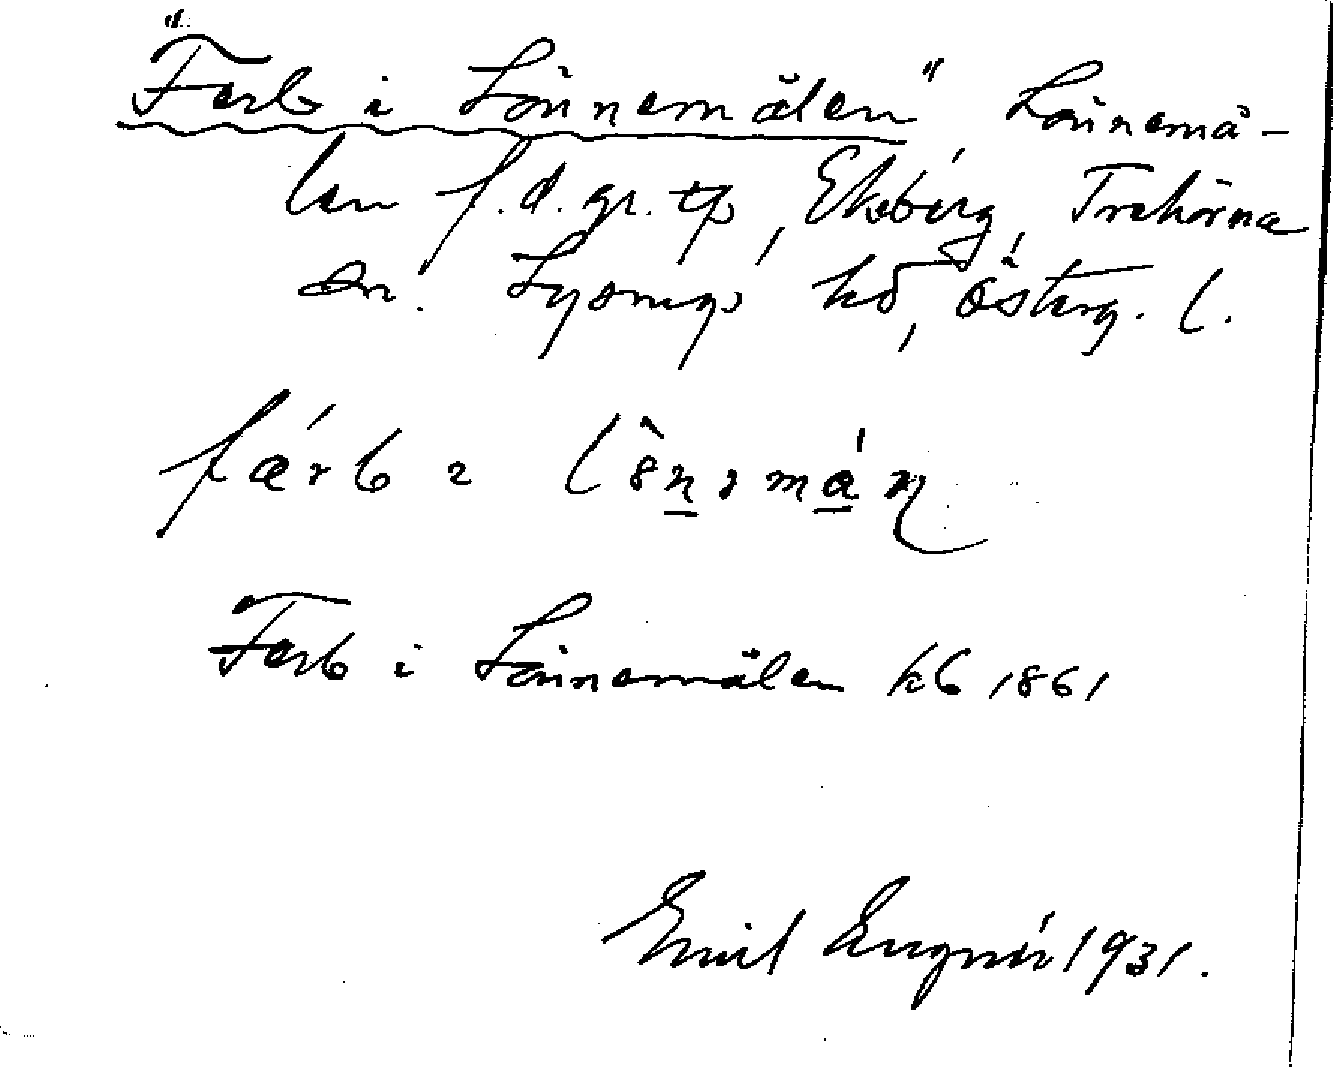 "Ferb i Lönnemålen" Lönnemå-
len f.d. gr. tp, Ekeberg, Trehörna
sn. Lysings hd, Österg. l.
færb i
Ferb i Lönnemålen kb 1861
Emil Eugnér 1931.